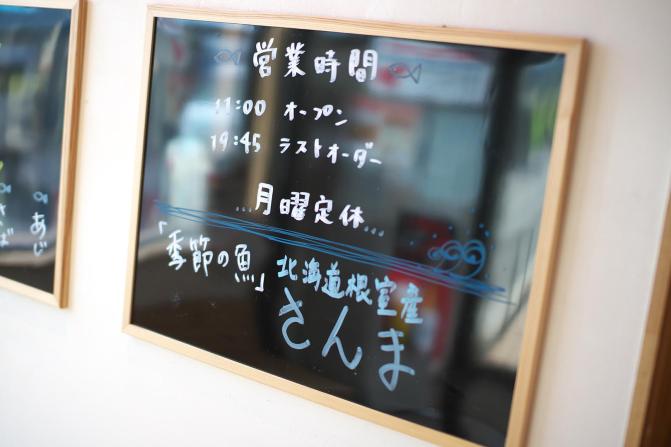 営業時間
11:00 オープン
19:45 ラストオーダー
...月曜定休...
「季節の魚」北海道根室産
さんま
あじ
さば